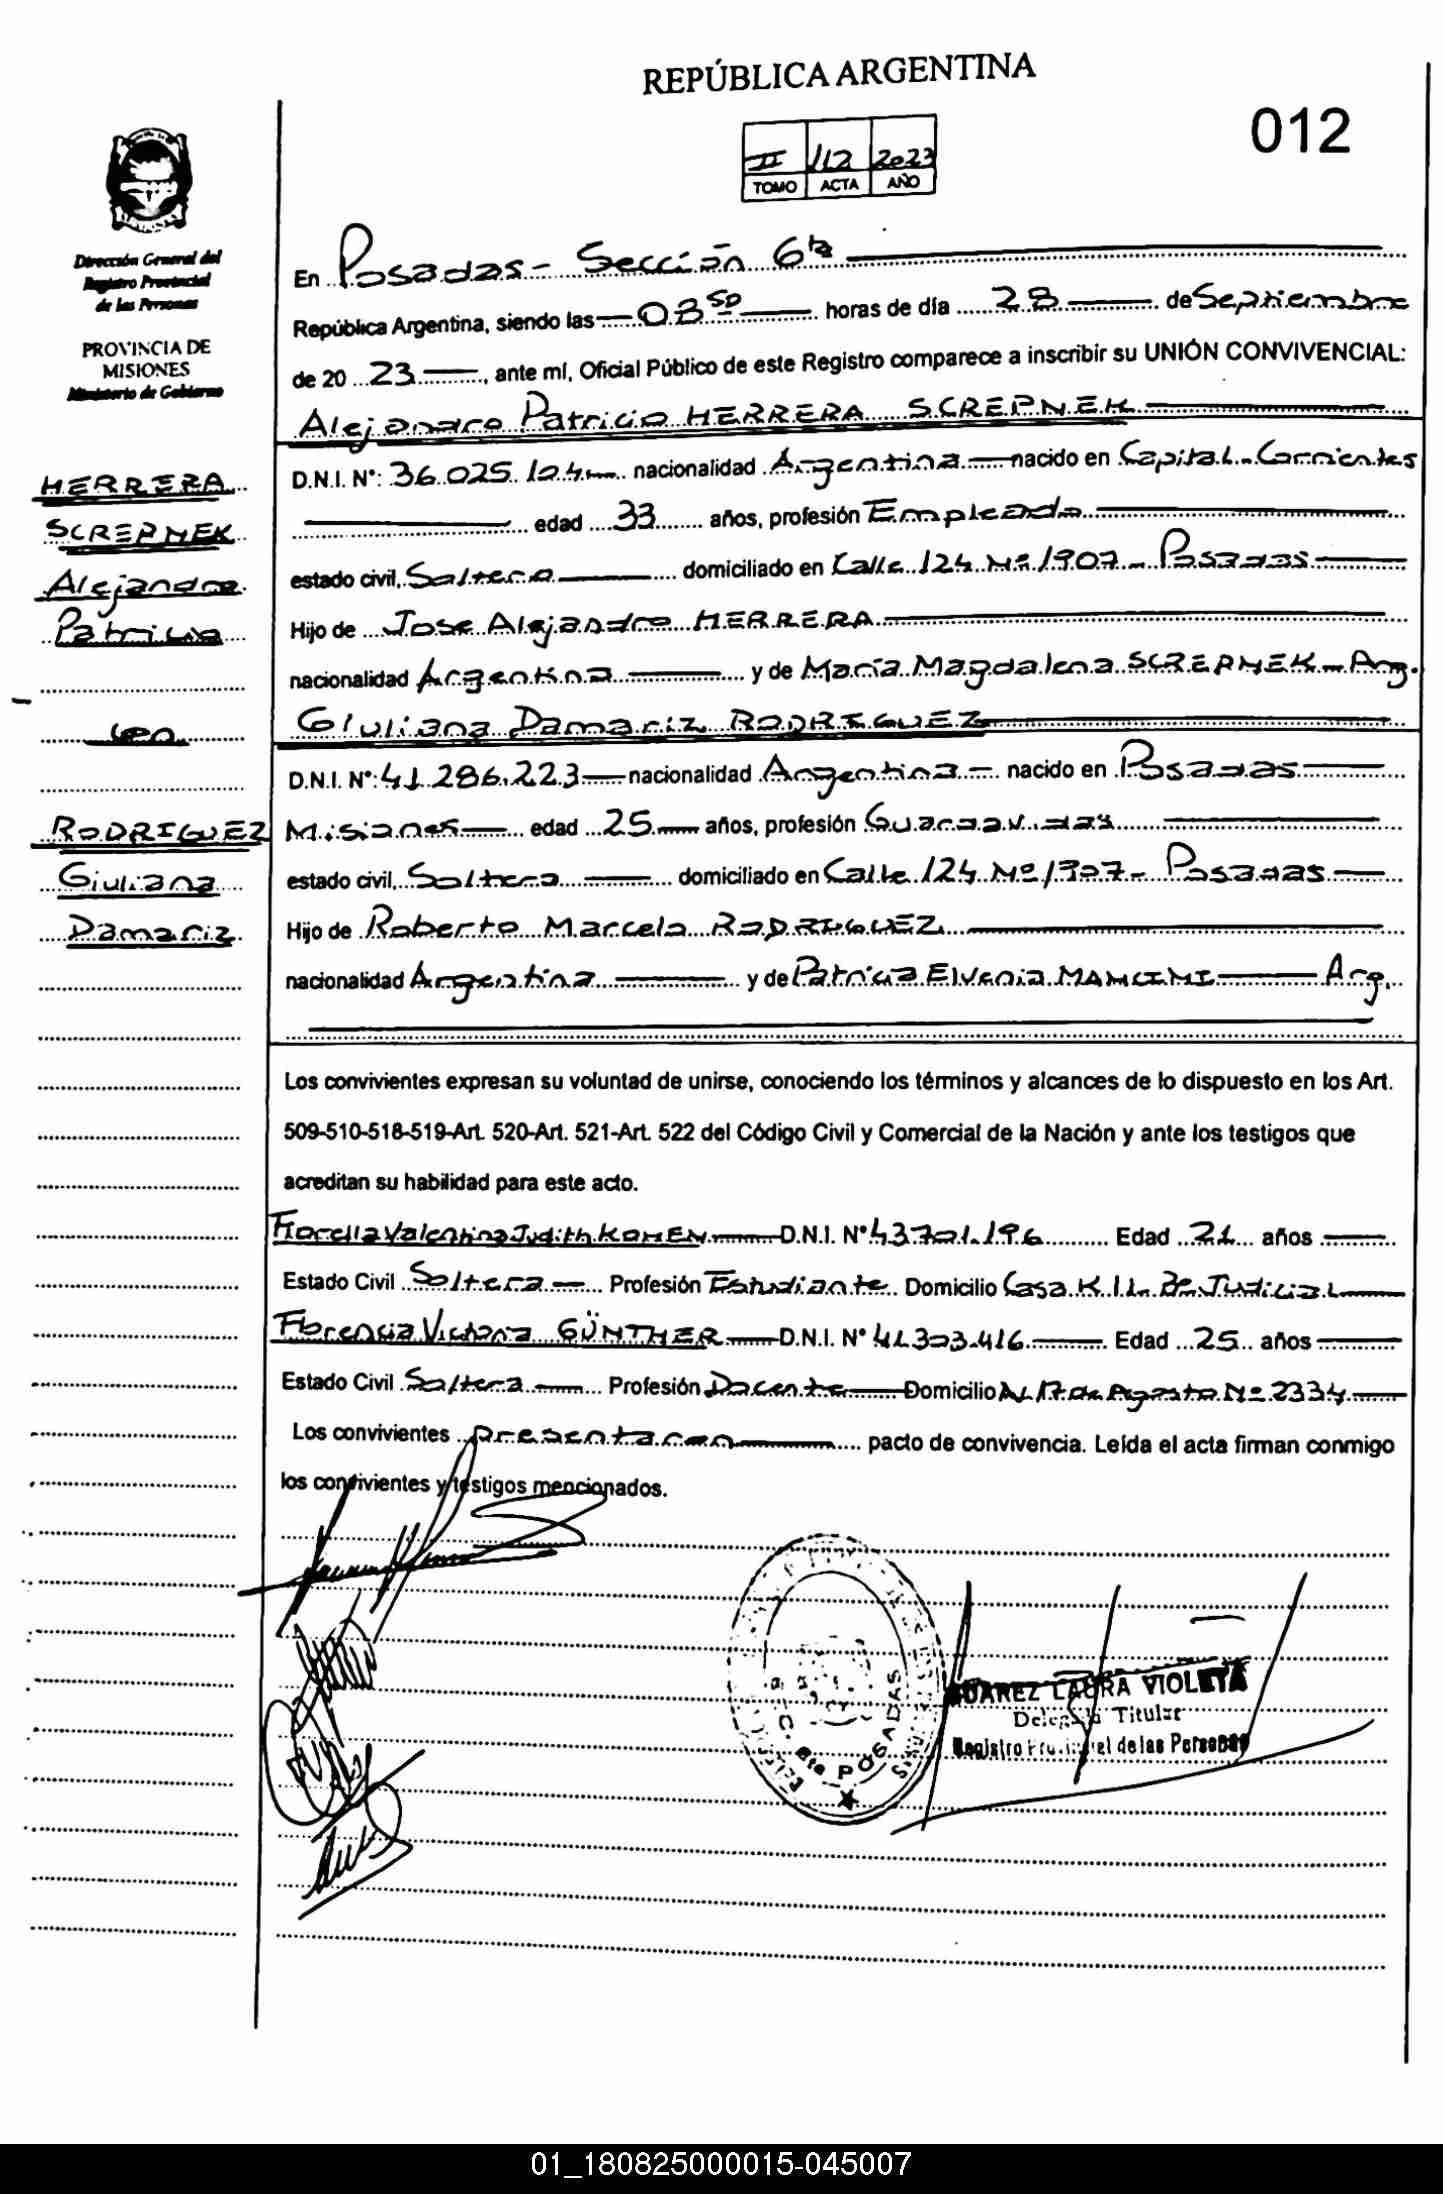 REPÚBLICA ARGENTINA
012
II 112 2023
TOMO ACTA AÑO
Dirección General del
Registro Provincial
de las Personas
PROVINCIA DE
MISIONES
Ministerio de Gobierno
En Posadas - Sección 6ta
República Argentina, siendo las 08 50 horas de día 28 de Septiembre
de 20 23, ante mí, Oficial Público de este Registro comparece a inscribir su UNIÓN CONVIVENCIAL:
Alejandro Patricio HERRERA SCREPNEK
D.N.I. N°: 36.025.124 nacionalidad Argentina nacido en Capital - Corrientes
edad 33 años, profesión Empleado
estado civil, Soltero domiciliado en Calle 124 Nº 1907 - Posadas
Hijo de Jose Alejandro HERRERA
nacionalidad Argentina y de María Magdalena SCREPNEK - Arg.
Giuliana Damariz RODRIGUEZ
D.N.I. N°: 41.286.223 nacionalidad Argentina nacido en Posadas
Misiones edad 25 años, profesión Guardavidas
estado civil, Soltera domiciliado en Calle 124 Nº 1907 - Posadas
Hijo de Roberto Marcelo RODRIGUEZ
nacionalidad Argentina y de Patricia Elvenia MANCINI Arg.
HERRERA
SCREPNEK
Alejandro
Patricio
con
RODRIGUEZ
Giuliana
Damariz
Los convivientes expresan su voluntad de unirse, conociendo los términos y alcances de lo dispuesto en los Art.
509-510-518-519-Art. 520-Art. 521-Art. 522 del Código Civil y Comercial de la Nación y ante los testigos que
acreditan su habilidad para este acto.
Fiorella Valentina Judith KOHEN D.N.I. N° 43.701.196 Edad 21 años
Estado Civil Soltera Profesión Estudiante Domicilio Casa K 11 Bº Judicial
Florencia Victoria GÜNTHER D.N.I. N° 41.303.416 Edad 25 años
Estado Civil Soltera Profesión Docente Domicilio Av 17 de Agosto Nº 2334
Los convivientes presentaron pacto de convivencia. Leída el acta firman conmigo
los convivientes y testigos mencionados.
6ta POSADAS
SUAREZ LAURA VIOLETA
Delegada Titular
Registro Provincial de las Personas
01_180825000015-045007